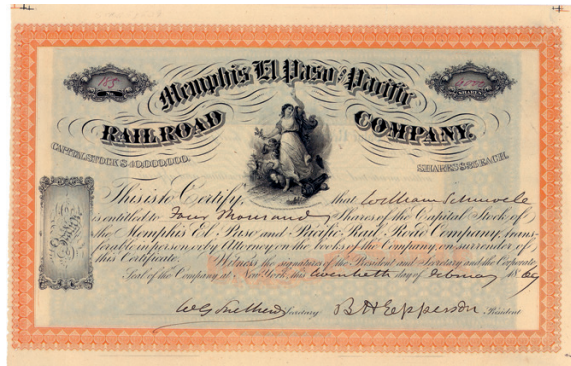 Memphis El Paso and Pacific
RAILROAD COMPANY.
CAPITAL STOCK $40,000,000. SHARES $ EACH.
SHARES
This is to Certify, that William
is entitled to Four Thousand Shares of the Capital Stock of
the Memphis El Paso and Pacific Rail Road Company, trans-
ferable in person or by Attorney on the books of the Company, on surrender of
this Certificate. Witness the signatures of the President and Secretary and the Corporate
Seal of the Company at New York, this twentieth day of February 1869
Secretary B H Epperson President